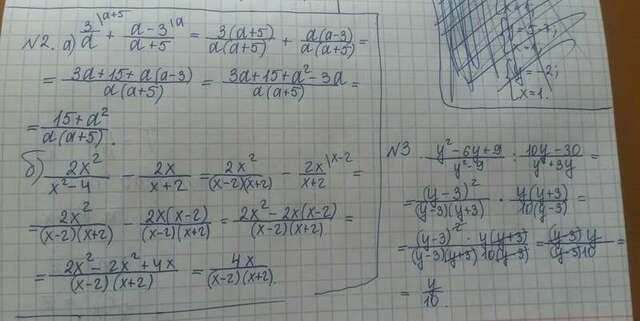 N2. а) 3/a \a+5 + a-3/a+5 \a = 3(a+5)/a(a+5) + a(a-3)/a(a+5) =
= 3a+15+a(a-3)/a(a+5) = 3a+15+a²-3a/a(a+5) =
= 15+a²/a(a+5).
б) 2x²/x²-4 - 2x/x+2 = 2x²/(x-2)(x+2) - 2x/x+2 \x-2 =
= 2x²/(x-2)(x+2) - 2x(x-2)/(x-2)(x+2) = 2x²-2x(x-2)/(x-2)(x+2) =
= 2x²-2x²+4x/(x-2)(x+2) = 4x/(x-2)(x+2).
y=-2;
x=1.
N3 y²-6y+9/y²-9 : 10y-30/y²+3y =
= (y-3)²/(y-3)(y+3) · y(y+3)/10(y-3) =
= (y-3)²·y(y+3)/(y-3)(y+3)10(y-3) = (y-3)y/(y-3)10 =
= y/10.